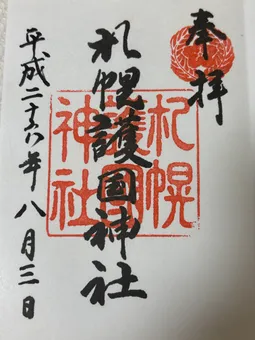 奉拝
札幌護国神社
平成二十六年八月三日
札幌
護国
神社